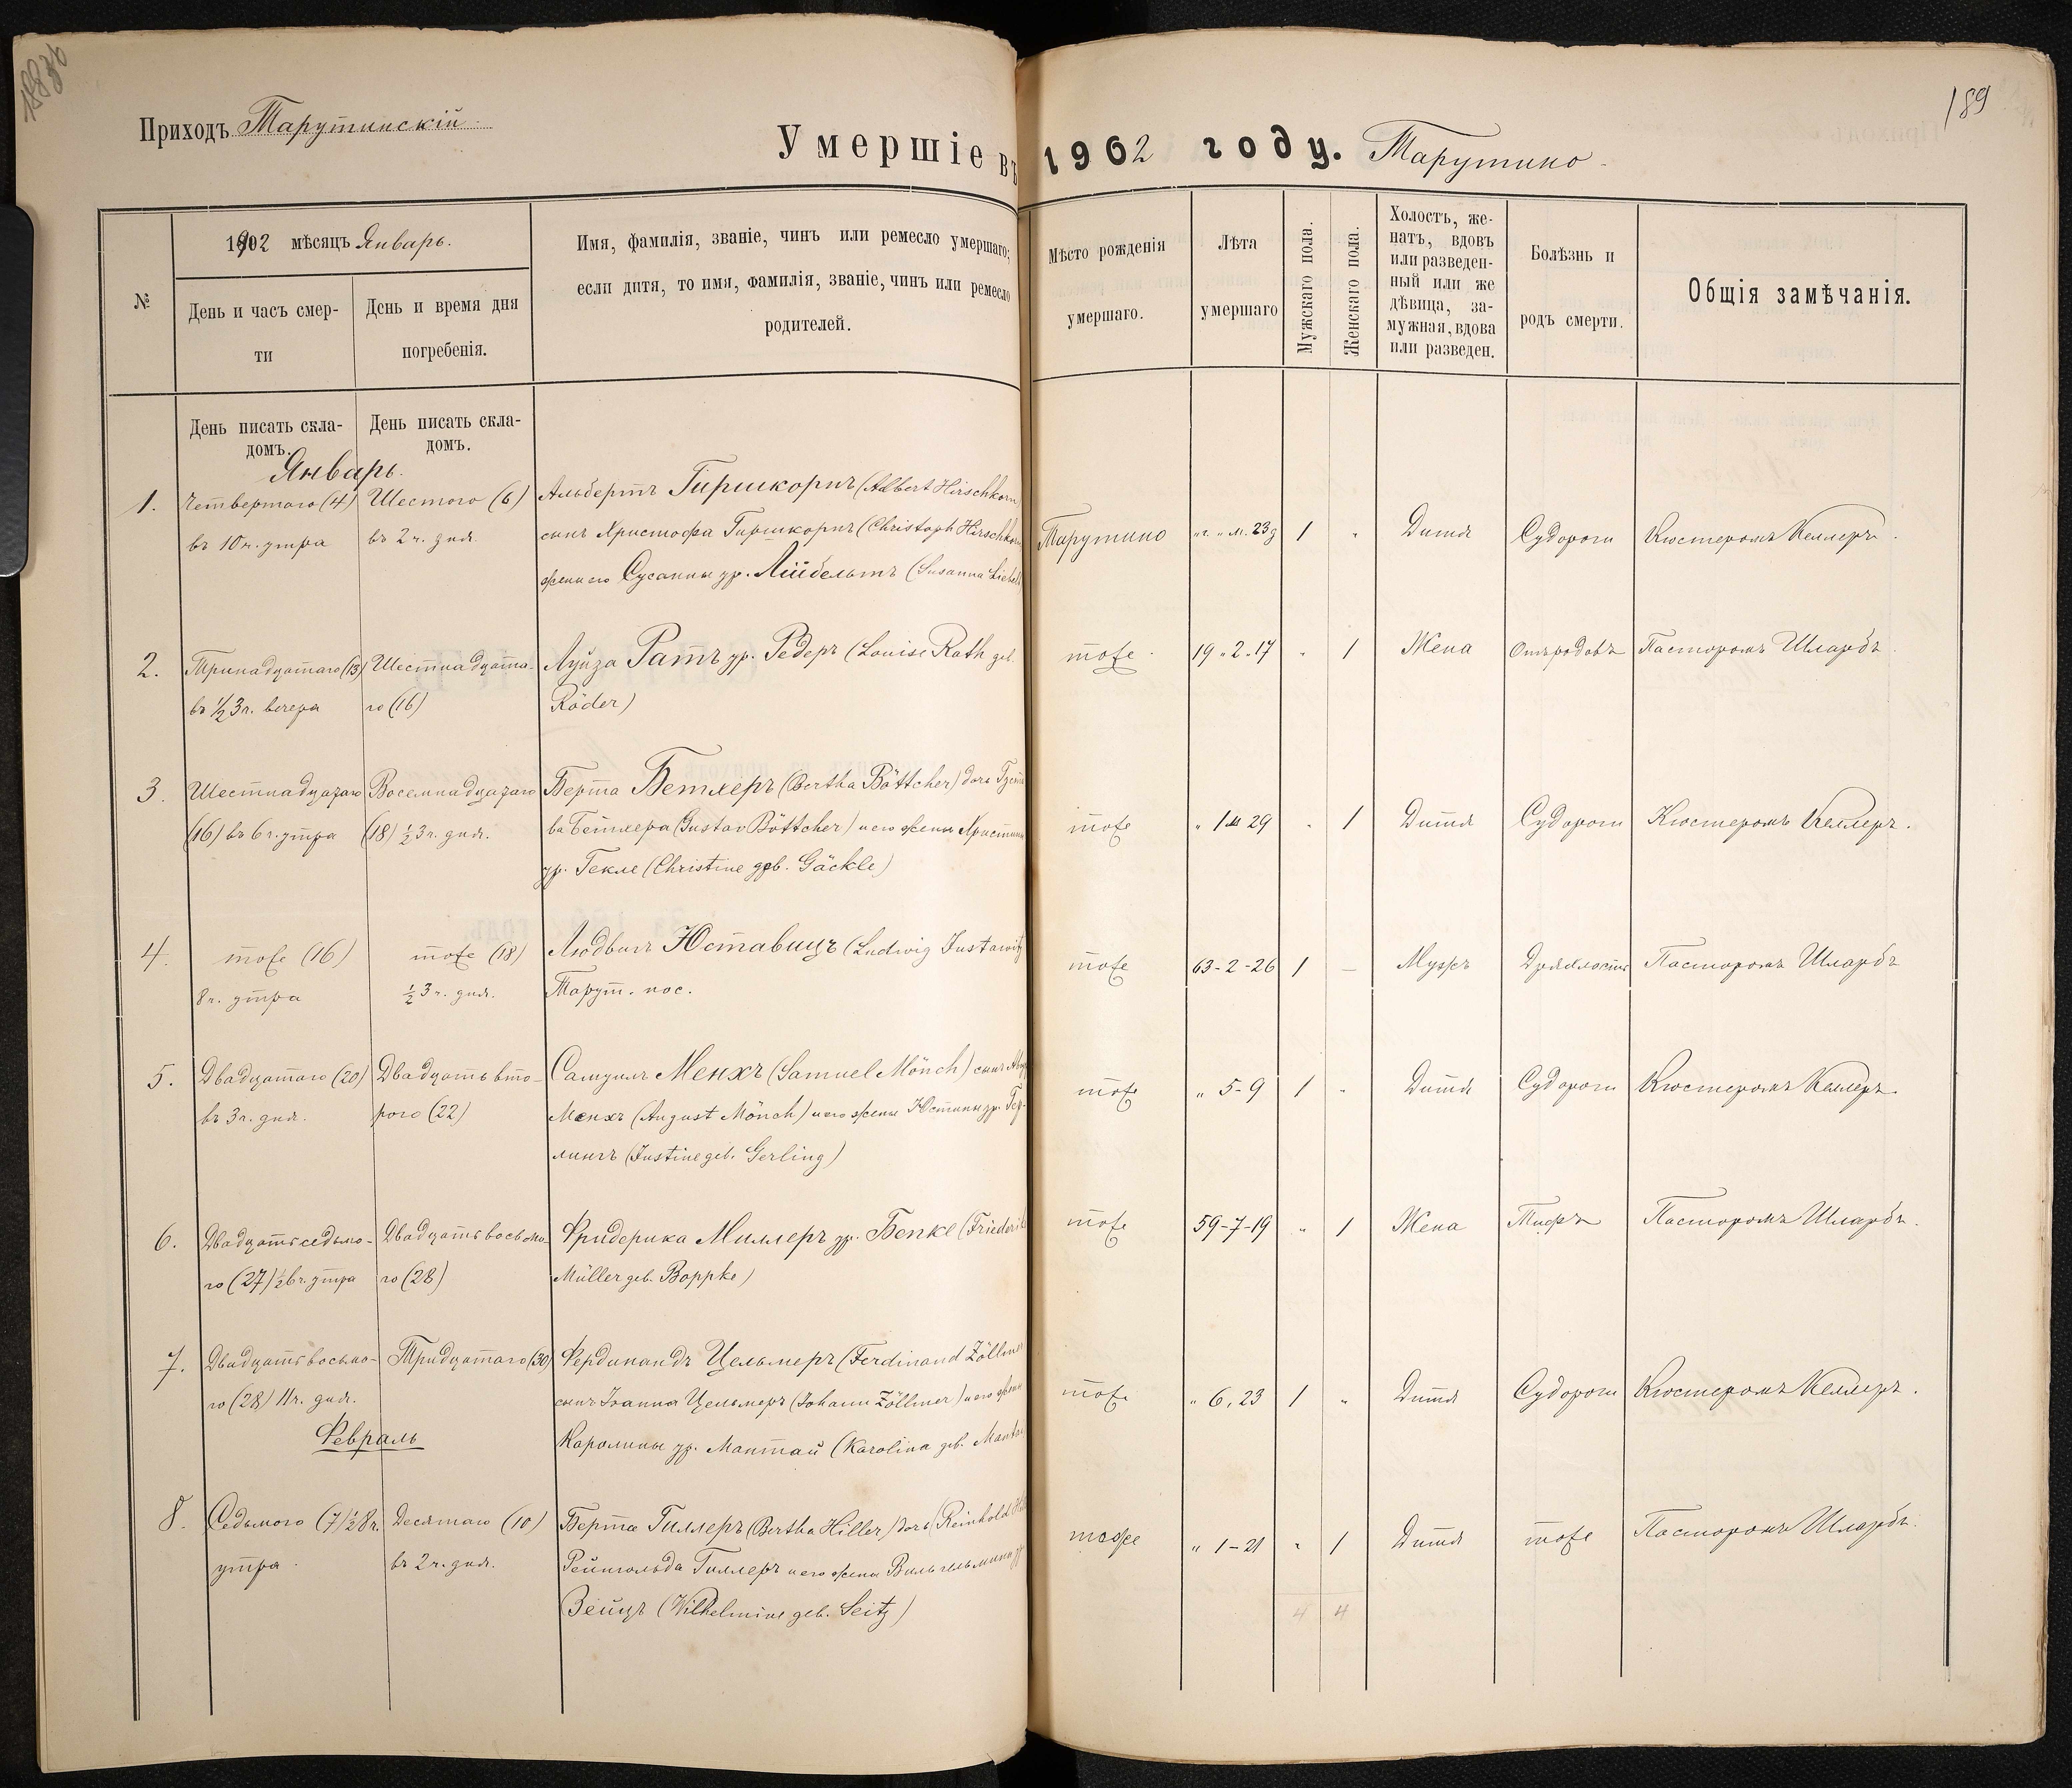 189
Приходъ Тарутинскій
Умершіе въ 1902 году. Тарутино
№
1902 мѣсяцъ Январь.
День и часъ смер-
ти
День и время дня
погребенія.
Имя, фамилія, званіе, чинъ или ремесло умершаго;
если дитя, то имя, фамилія, званіе, чинъ или ремесло
родителей.
Мѣсто рожденія
умершаго.
Лѣта
умершаго
Мужскаго пола.
Женскаго пола.
Холостъ, же-
натъ, вдовъ
или разведен-
ный или же
дѣвица, за-
мужная, вдова
или разведен.
Болѣзнь и
родъ смерти.
Общія замѣчанія.
День писать скла-
домъ.
День писать скла-
домъ.
Январь.
1. Четвертаго (4) Шестого (6) Альбертъ Гиршкорнъ (Albert Hirschkorn
въ 10 ч. утра въ 2 ч. дня. сынъ Христофа Гиршкорнъ (Christoph Hirschkorn Тарутино „ г. „ м. 23 д 1 „ Дитя Судороги Кюстеромъ Келлеръ.
жены его Сусанны ур. Лійбельтъ (Susanna Liebelt
2. Тринадцатаго (13) Шестнадцата- Луиза Ратъ ур. Редеръ (Louise Rath geb. тоже. 19 „ 2 „ 17 „ 1 Жена Отъ родовъ Пасторомъ Шлархъ.
въ ½ 3 ч. вечера го (16) Röder)
3. Шестнадцатаго Восемнадцатаго Берта Бетхеръ (Bertha Böttcher) дочь Густа
(16) въ 6 ч. утра (18) ½ 3 ч. дня. ва Бетхера (Gustav Böttcher) и его жены Христины тоже „ 1 м 29 „ 1 Дитя Судороги Кюстеромъ Келлеръ.
ур. Гекле (Christine geb. Gäckle)
4. тоже (16) тоже (18) Людвигъ Юставицъ (Ludwig Justawitz тоже 63-2-26 1 – Мужъ Дряхлость Пасторомъ Шлархъ
8 ч. утра ½ 3 ч. дня. Тарут. пос.
5. Двадцатаго (20) Двадцать вто- Самуилъ Менхъ (Samuel Mönch) сынъ тоже „ 5-9 1 „ Дитя Судороги Кюстеромъ Келлеръ.
въ 3 ч. дня. рого (22) Менхъ (August Mönch) и его жены Юстины ур. Гер-
лингъ (Justine geb. Gerling)
6. Двадцать седьмо- Двадцать восьмо- Фридерика Миллеръ ур. Бепке (Friederike тоже 59-7-19 „ 1 Жена Тифъ Пасторомъ Шлархъ.
го (27) ½ 6 ч. утра го (28) Müller geb. Boppke)
7. Двадцать восьмо- Тридцатаго (30) Фердинандъ Цельмеръ (Ferdinand Zöllmer
го (28) 11 ч. дня. сынъ Іоанна Цельмеръ (Johann Zöllmer) и его жены тоже „ 6, 23 1 „ Дитя Судороги Кюстеромъ Келлеръ.
Февраль Каролины ур. Мантай (Karolina geb. Mantai
8. Седьмого (7) ½ 8 ч. Десятаго (10) Берта Гиллеръ (Bertha Hiller) дочь (Reinhold тоже „ 1-21 „ 1 Дитя тоже Пасторомъ Шлархъ.
утра. въ 2 ч. дня. Рейнгольда Гиллеръ и его жены Вильгельмины ур
Зейцъ (Wilhelmine geb. Seitz)
4 4